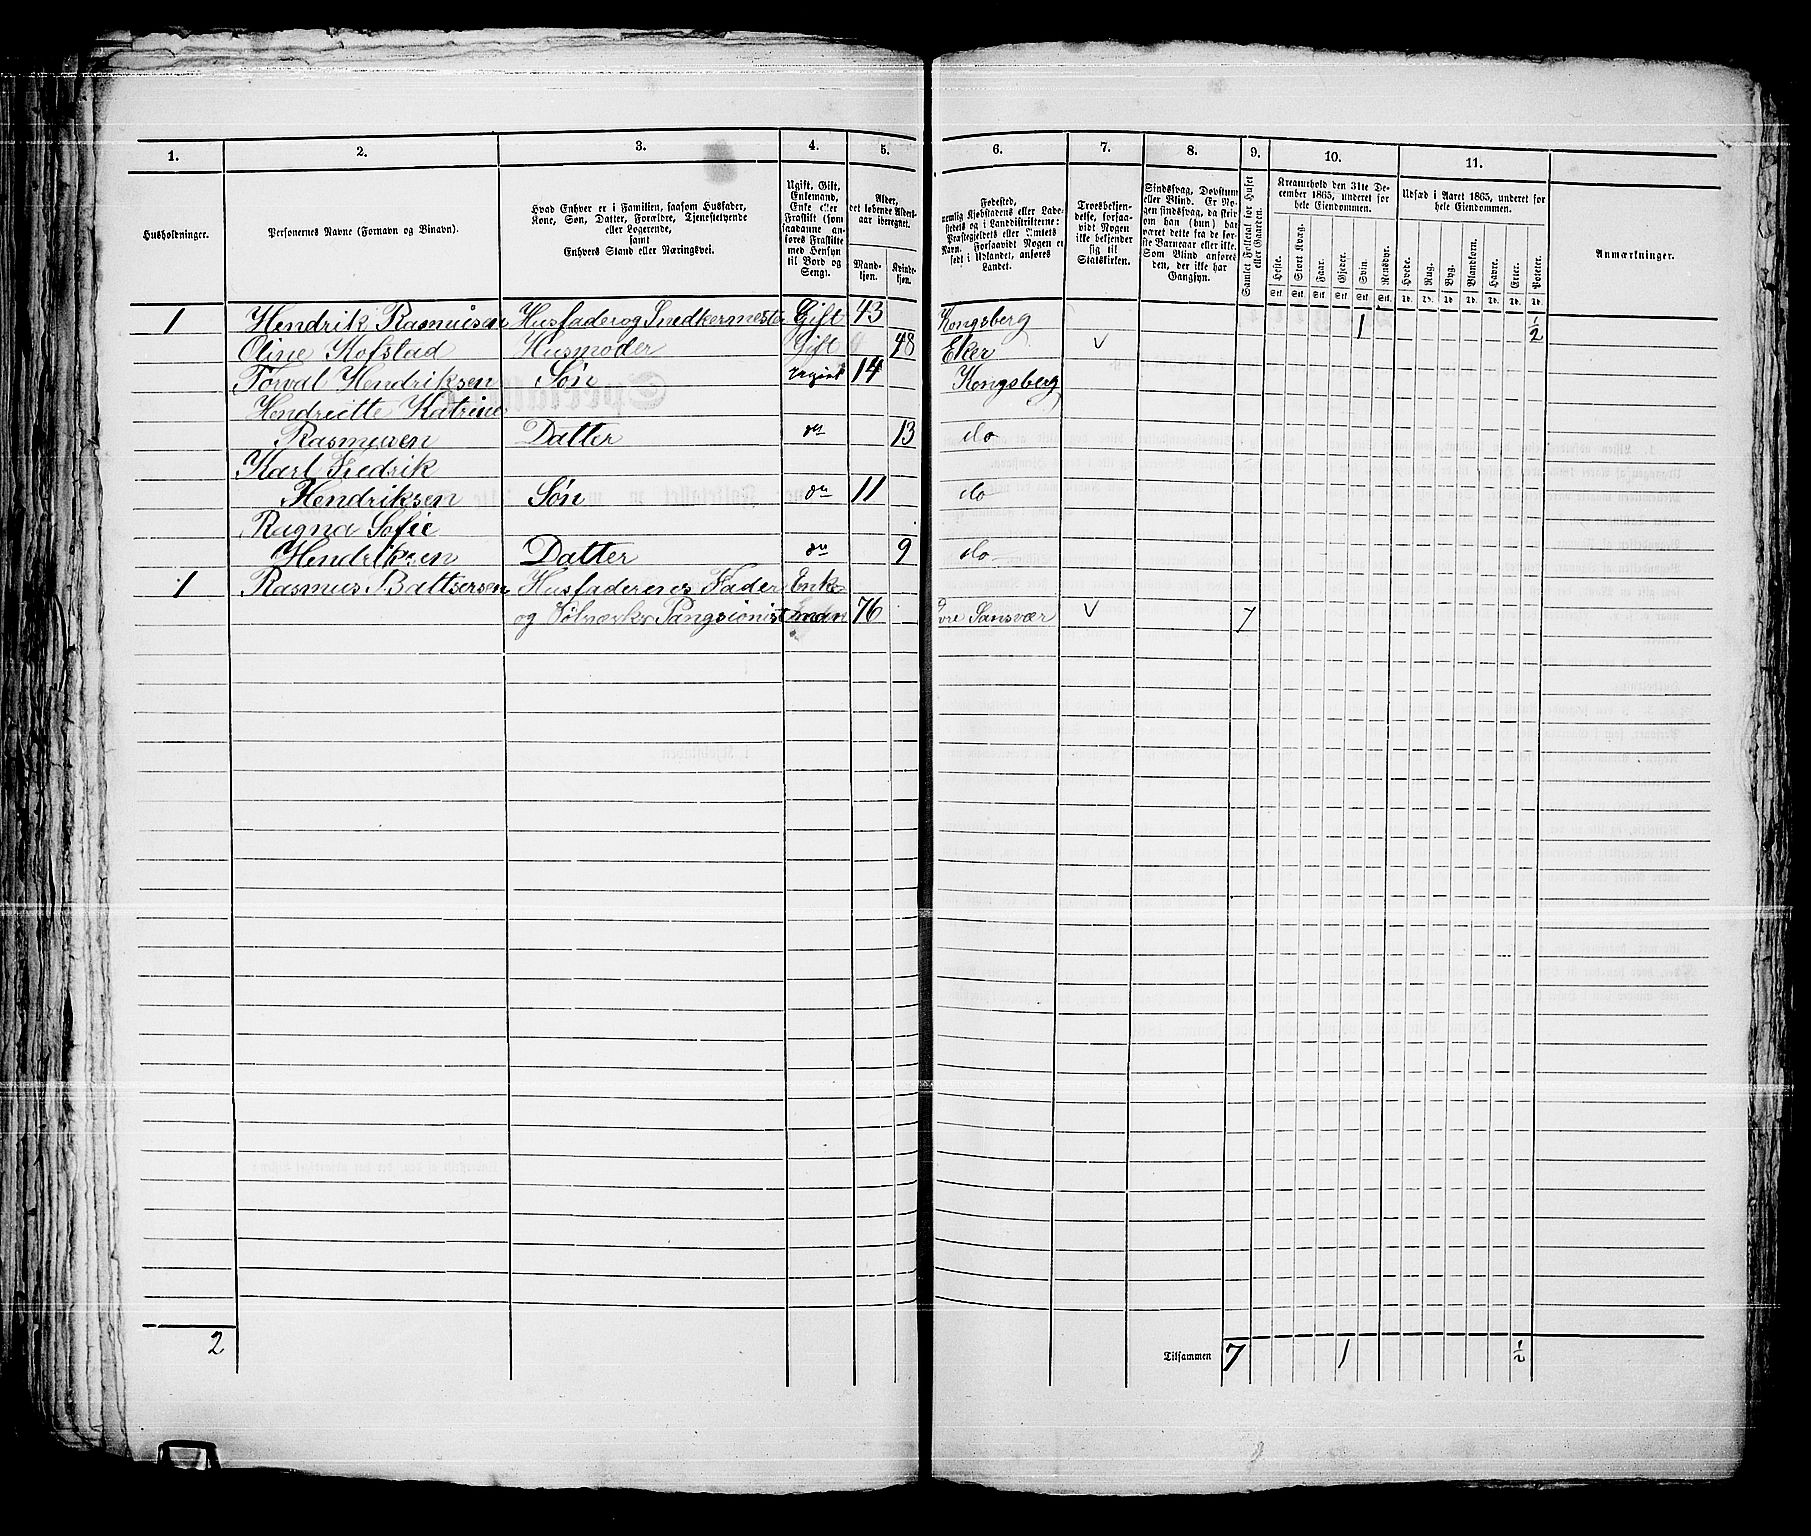 1. 2. 3. 4. 5. 6. 7. 8. 9. 10. 11.
Husholdninger.
Personernes Navne (Fornavn og Binavn).
Hvad Enhver er i Familien, saasom Husfader,
Kone, Søn, Datter, Forældre, Tjenestetyende
eller Logerende,
samt
Enhvers Stand eller Næringsvei.
Ugift, Gift,
Enkemand,
Enke eller
Fraskilt (som
saadanne an-
føres Fraskilte
med Hensyn
til Bord og
Seng).
Alder,
det løbende Alders-
aar iberegnet.
Mand-
kjøn.
Kvinde-
kjøn.
Fødested,
nemlig Kjøbstadens eller Lade-
stedets og i Landdistrikterne:
Præstegjeldets eller Amtets
Navn. Forsaavidt Nogen er
født i Udlandet, anføres
Landet.
Troesbekjen-
delse, forsaa-
vidt Nogen
ikke bekjender
sig til
Statskirken.
Sindssvag, Døvstum
eller Blind. Er No-
gen sindssvag, da skriv
om han (hun) har
været dette fra de før-
ste Barneaar eller ikke.
Som Blind anføres
den, der ikke har
Gangsyn.
Samlet Folketal for Huset
eller Gaarden.
Kreaturhold den 31te De-
cember 1865, underet for
hele Eiendommen.
Heste. Stort Kvæg. Faar. Gjeder. Svin. Rensdyr.
Stk. Stk. Stk. Stk. Stk. Stk.
Udsæd i Aaret 1865, underet for
hele Eiendommen.
Hvede. Rug. Byg. Blandkorn. Havre. Erter. Poteter.
Td. Td. Td. Td. Td. Td. Td.
Anmærkninger.
1 Hendrik Rasmusen Husfader og Snedkermester Gift 43 Kongsberg 1 1/2
Oline Hofslad Husmoder Gift 48 Eker v
Torval Hendriksen Søn Ugivt 14 Kongsberg
Hendriette Katrine
Rasmusen Datter do 13 do
Karl Fredrik
Hendriksen Søn do 11 do
Ragna Sofie
Hendriksen Datter do 9 do
1 Rasmus Baltsersen Husfaderenes Fader Enke-
og Sølværks Pangsionist mand 76 Øvre Sansvær v 7
2 Tilsammen 7 1 1/2